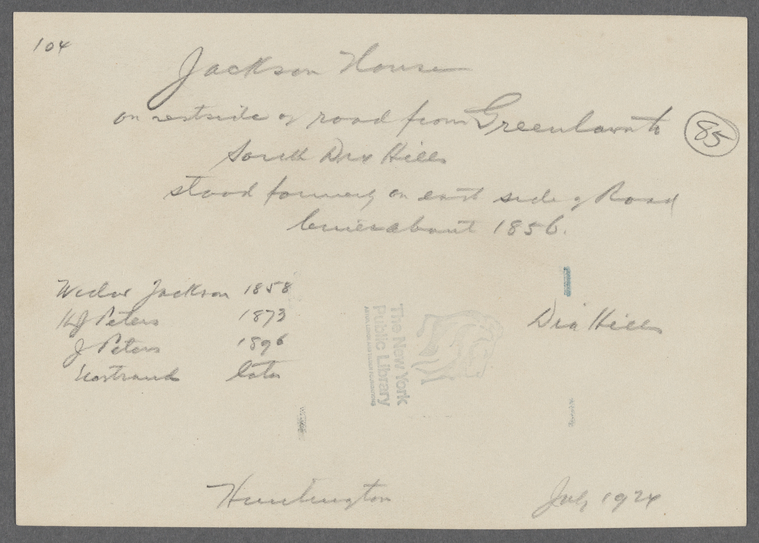 104
Jackson House
on westside of road from Greenlawn to
South Dix Hills
85
stood formerly on east side of Road
about 1856.
Jackson 1858
H J Peters 1873
J Peters 1896
Dix Hills
Nostrand later
The New York
Public Library
Huntington
July 1924